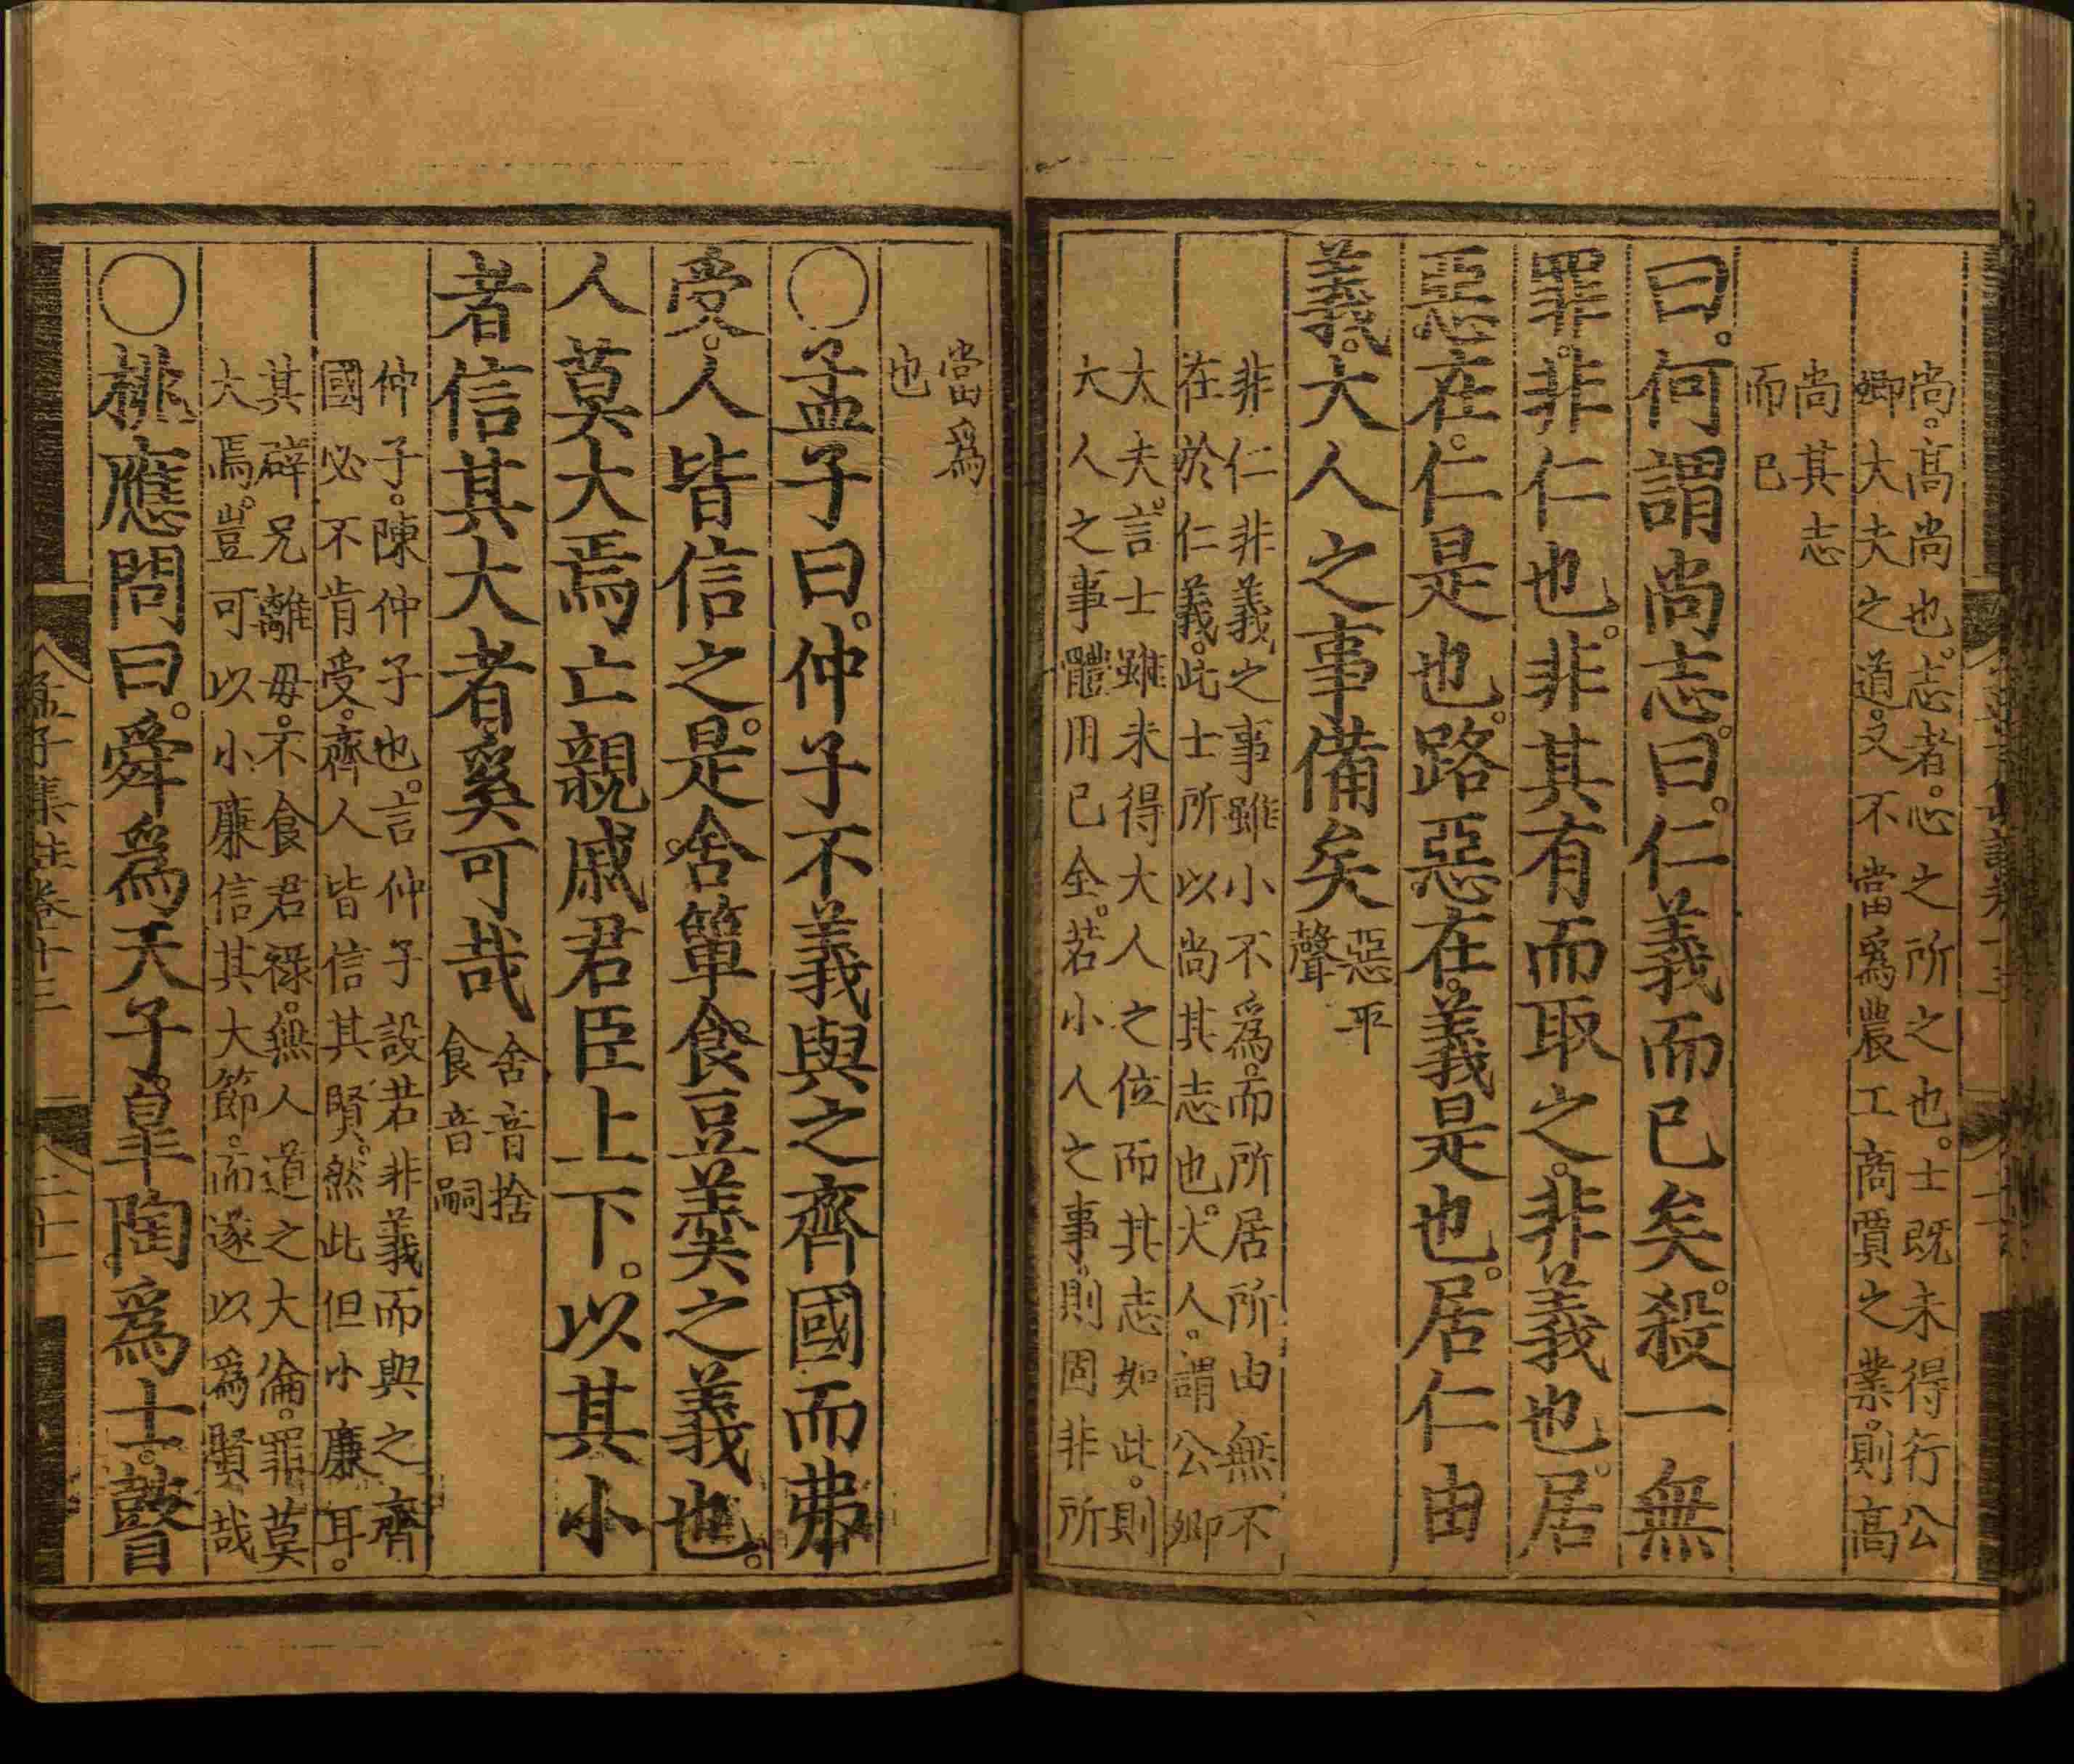 尚。高尚也。志者。心之所之也。士既未得行公
卿大夫之道。又不當爲農工商賈之業。則高
尚其志
而已
曰。何謂尚志。曰。仁義而已矣。殺一無
罪。非仁也。非其有而取之。非義也。居
惡在。仁是也。路惡在。義是也。居仁由
義。大人之事備矣
惡平
聲
非仁非義之事雖小不爲。而所居所由無不
在於仁義。此士所以尚其志也。大人。謂公卿
大夫。言士雖未得大人之位而其志如此。則
大人之事體用已全。若小人之事。則固非所
當爲
也
○孟子曰。仲子不義與之齊國而弗
受。人皆信之。是舍簞食豆羹之義也。
人莫大焉亡親戚君臣上下。以其小
者信其大者奚可哉
舍音捨
食音嗣
仲子。陳仲子也。言仲子設若非義而與之齊
國必不肯受。齊人皆信其賢。然此但小廉耳。
其辟兄離母。不食君祿。無人道之大倫。罪莫
大焉。豈可以小廉信其大節。而遂以爲賢哉
○桃應問曰。舜爲天子皐陶爲士。瞽
孟子集註卷十三
二十一